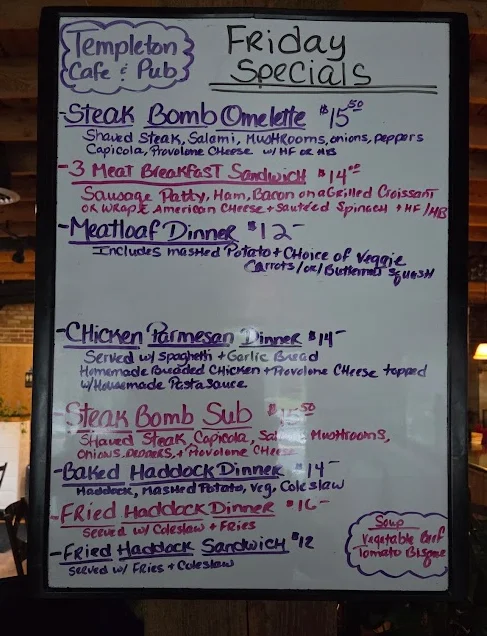 Templeton
Cafe & Pub
Friday
Specials
-Steak Bomb Omelette $15.50
Shaved Steak, Salami, Mushrooms, onions, peppers
Capicola, Provolone Cheese w/ HF or HB
-3 Meat Breakfast Sandwich $14.00
Sausage Patty, Ham, Bacon on a Grilled Croissant
or wrap & American Cheese + Sautéed Spinach + HF/HB
-Meatloaf Dinner $12-
Includes mashed Potato + Choice of Veggie
Carrots/or/Butternut Squash
-Chicken Parmesan Dinner $14-
Served w/ Spaghetti + Garlic Bread
Homemade Breaded Chicken + Provolone Cheese topped
w/Housemade Pasta sauce
-Steak Bomb Sub 50
Shaved Steak, Capicola, Mushrooms,
onions, peppers, + Provolone Cheese
-Baked Haddock Dinner $14-
Haddock, Mashed Potato, Veg, Coleslaw
-Fried Haddock Dinner $16-
Served w/ Coleslaw + Fries
-Fried Haddock Sandwich $12
Served w/ Fries + Coleslaw
Soup
Vegetable Beef
Tomato Bisque